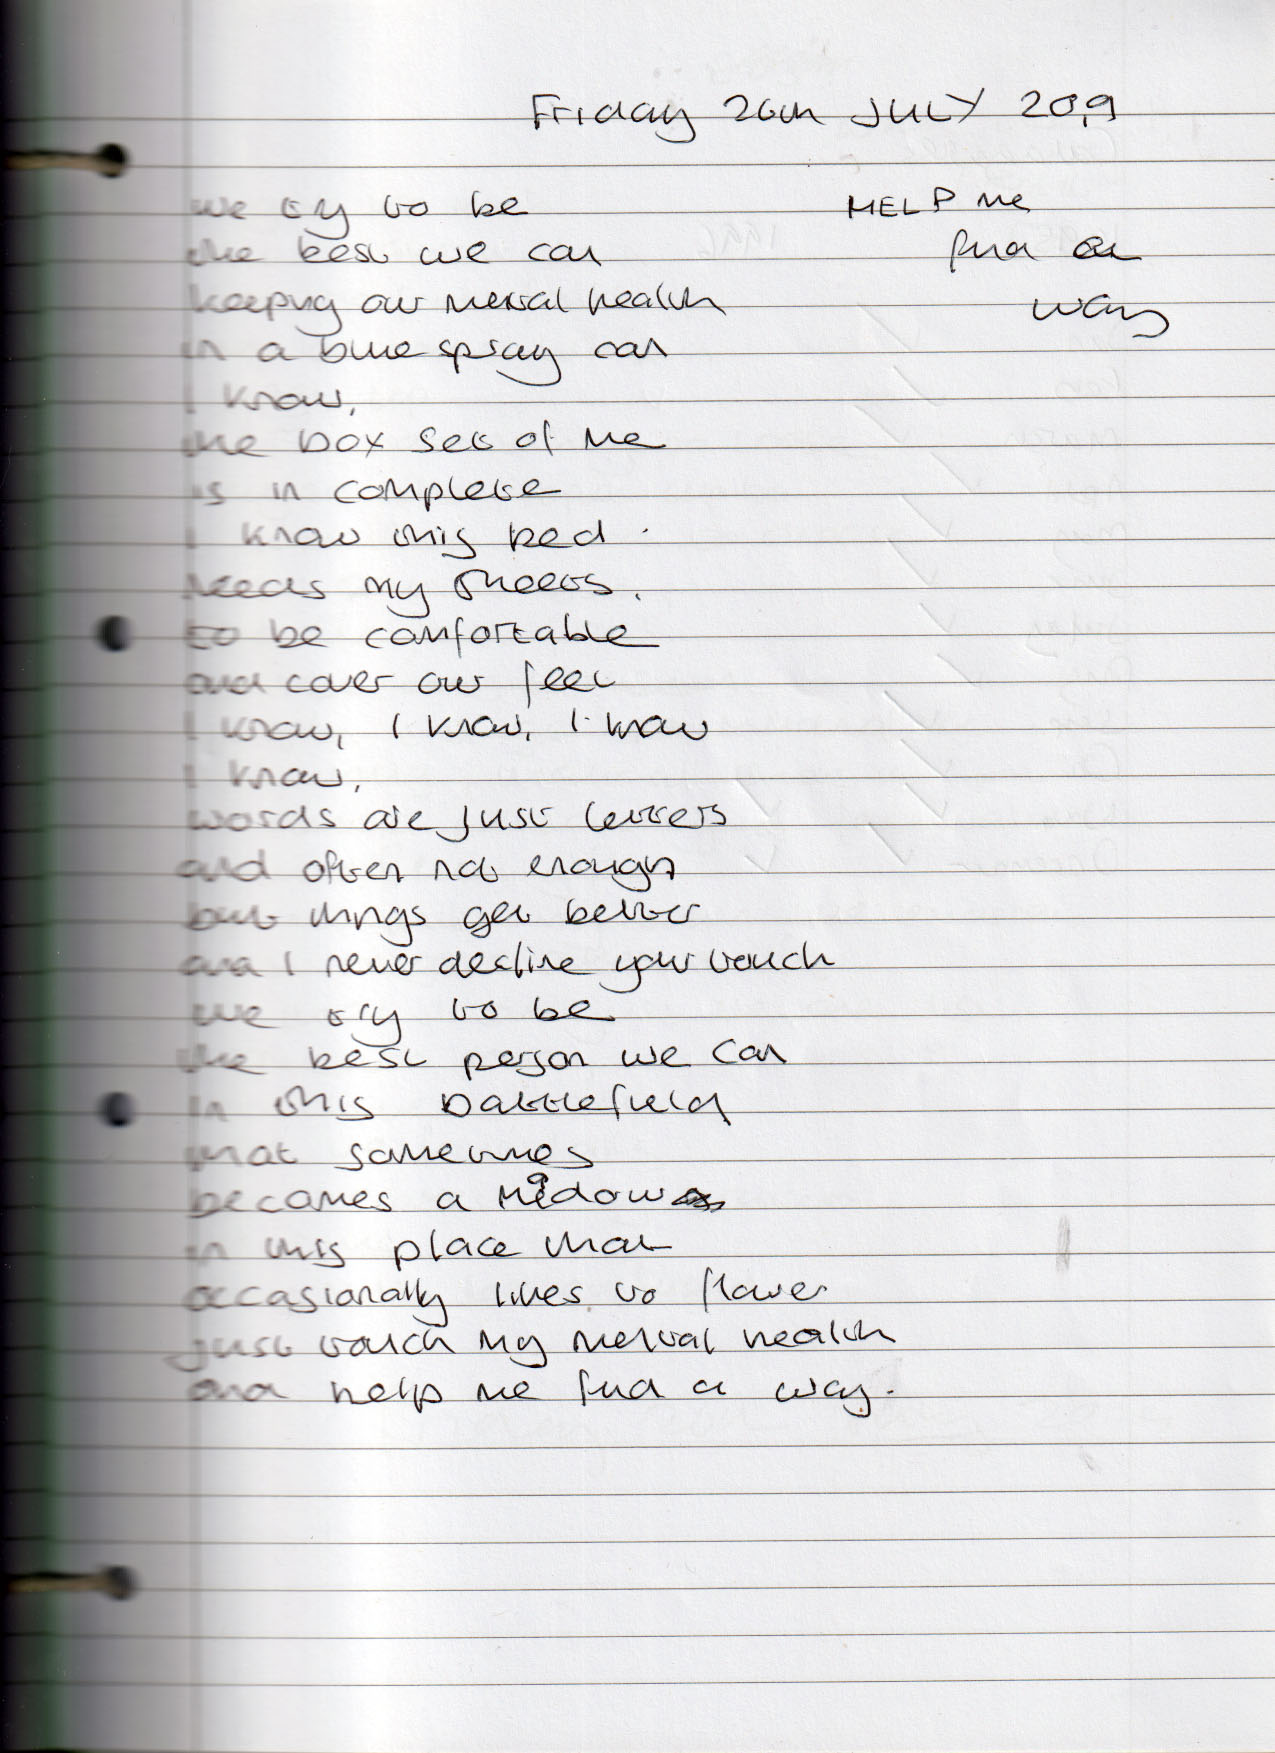 Friday 26th JULY 2019
HELP me
find a
way
we try to be
the best we can
keeping our mental health
in a blue spray can
I know,
the box set of me
is in complete
I know this bed
needs my sheets.
to be comfortable
and cover our feet
I know, I know, I know
I know,
words are just letters
and often not enough
but things get better
and I never decline your touch
we try to be
the best person we can
in this battlefield
that sometimes
becomes a meadow
in this place that
occasionally likes to flower
just touch my mental health
and help me find a way.